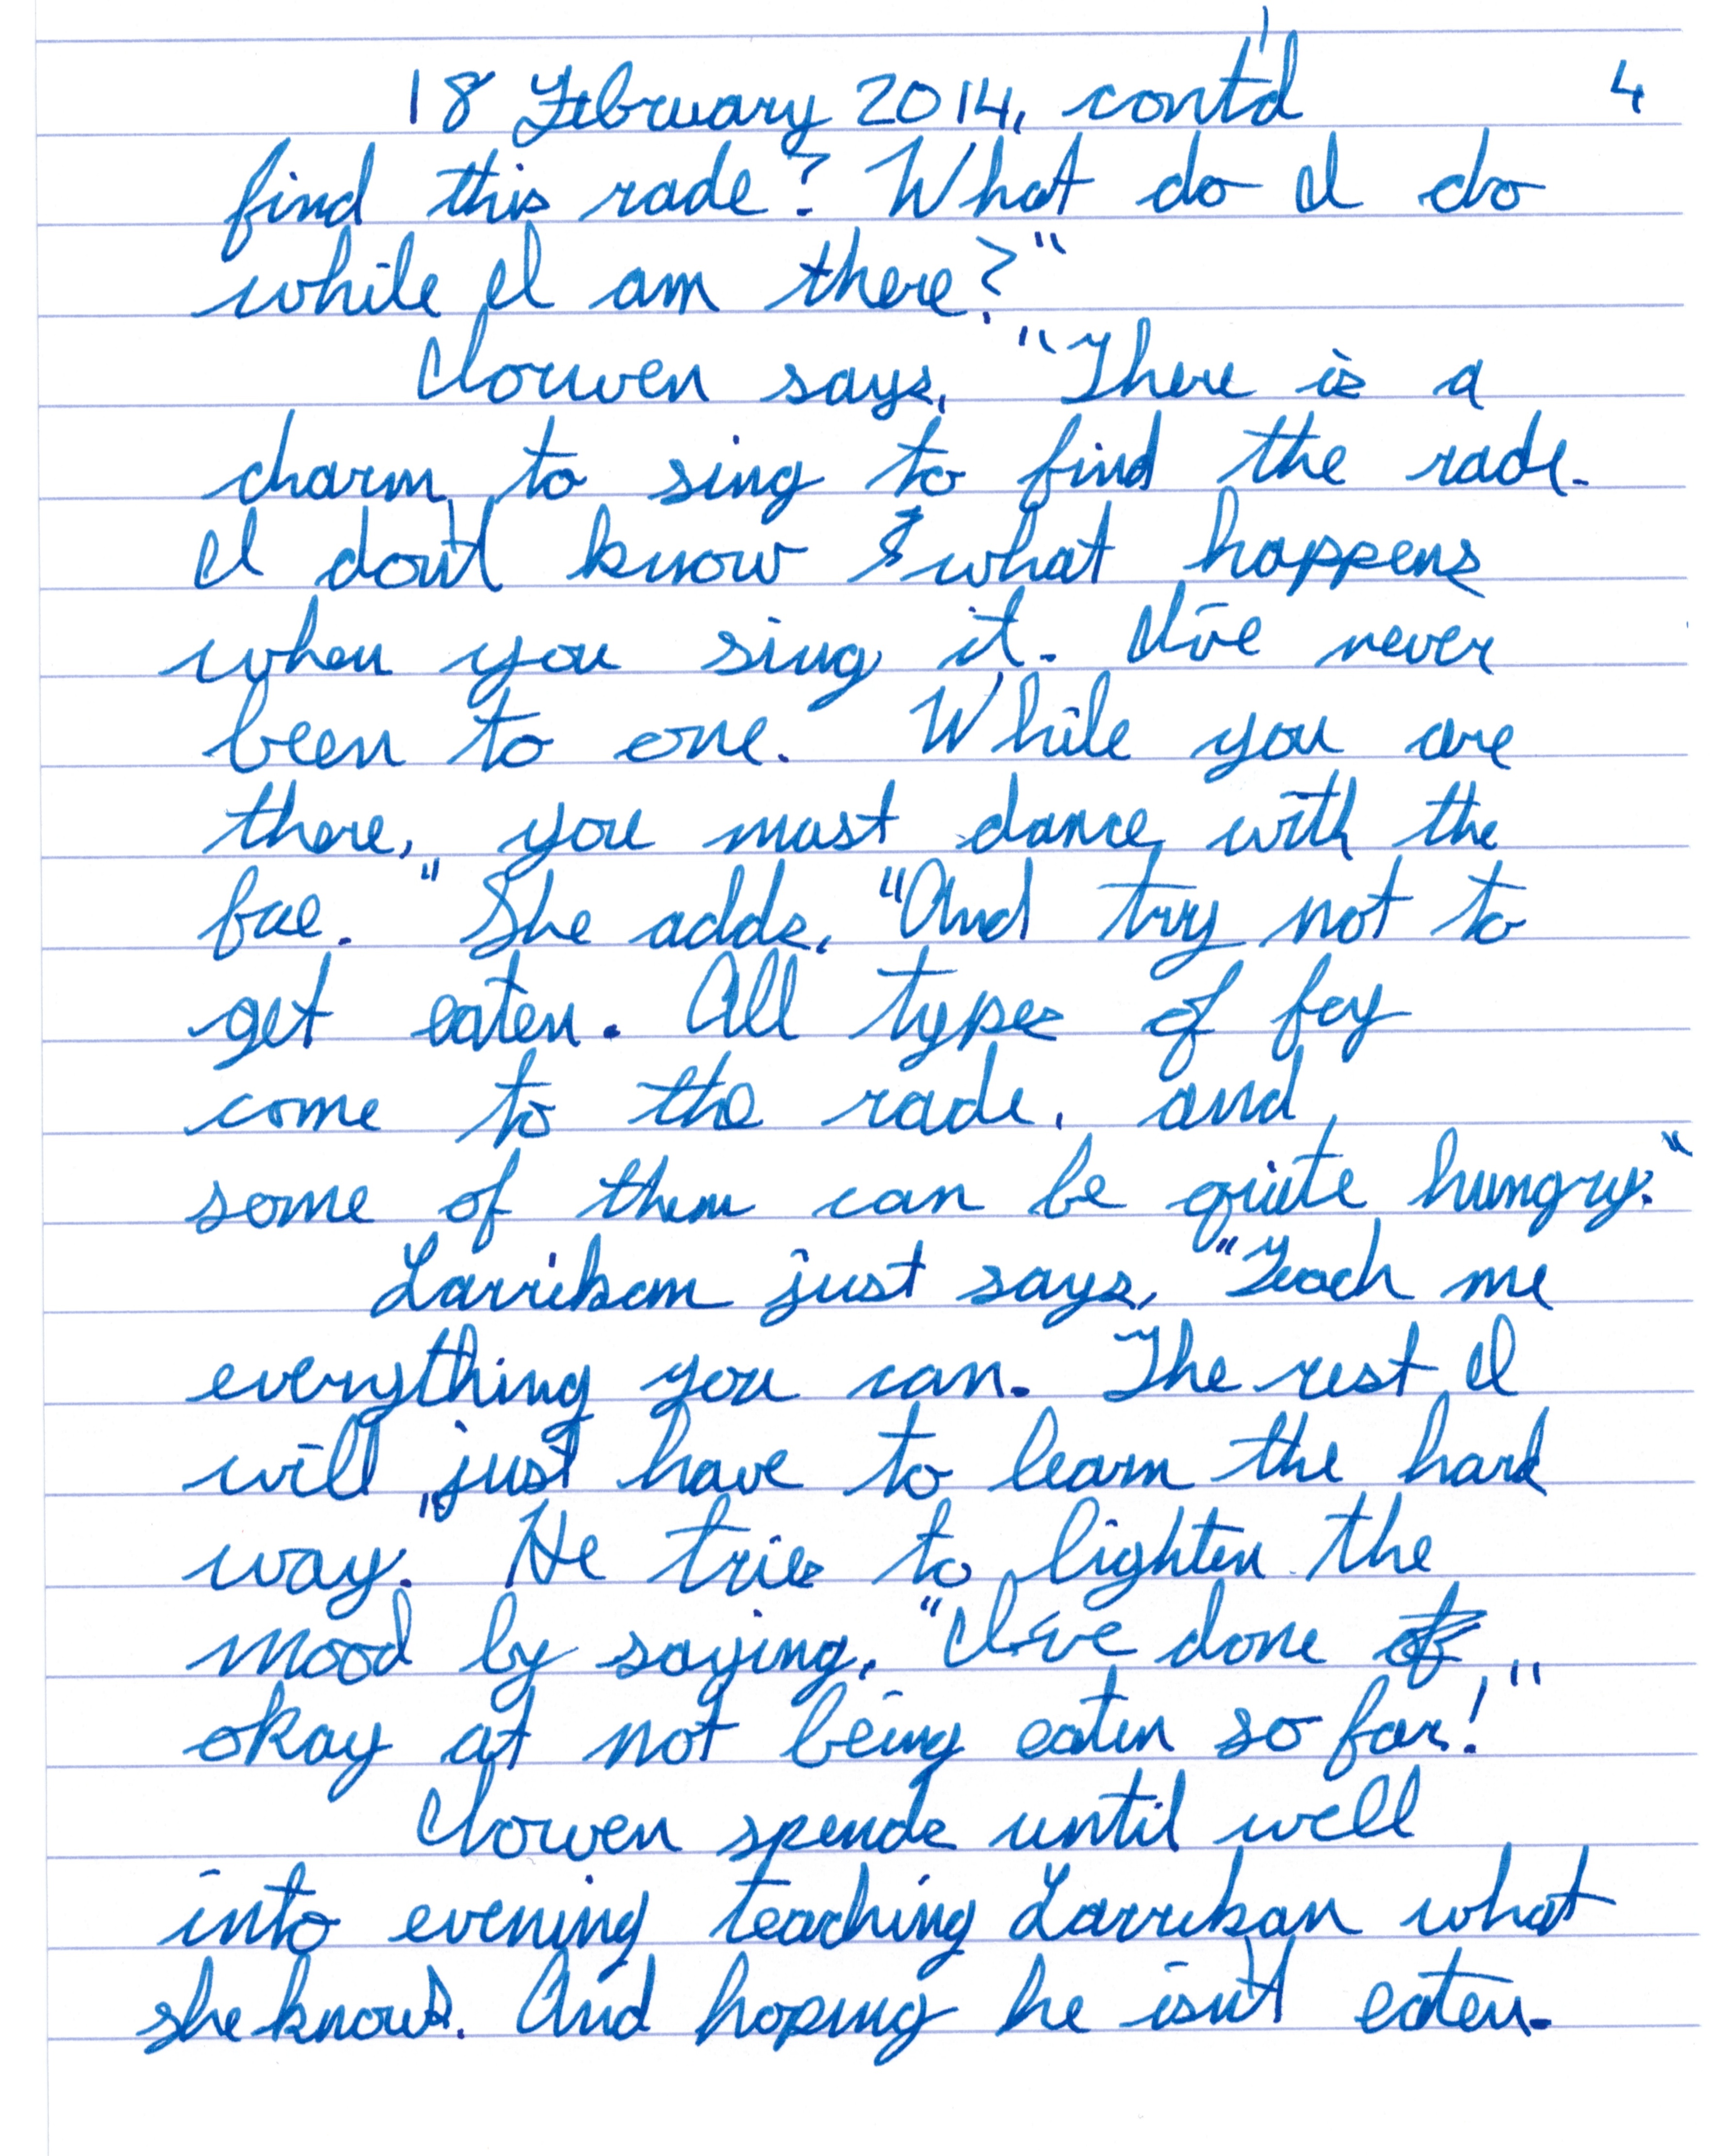 18 February 2014, cont'd 4
find this rade? What do I do
while I am there?"
Iouwen says, "There is a
charm to sing to find the rade.
I don't know what happens
when you sing it. I've never
been to one. While you are
there, you must dance with the
fae." She adds, "And try not to
get eaten. All types of fey
come to the rade, and
some of them can be quite hungry."
Larrikan just says, "Teach me
everything you can. The rest I
will just have to learn the hard
way." He tries to lighten the
mood by saying, "I've done
okay at not being eaten so far!"
Iowen spends until well
into evening teaching Larrikan what
she knows. And hoping he isn't eaten.